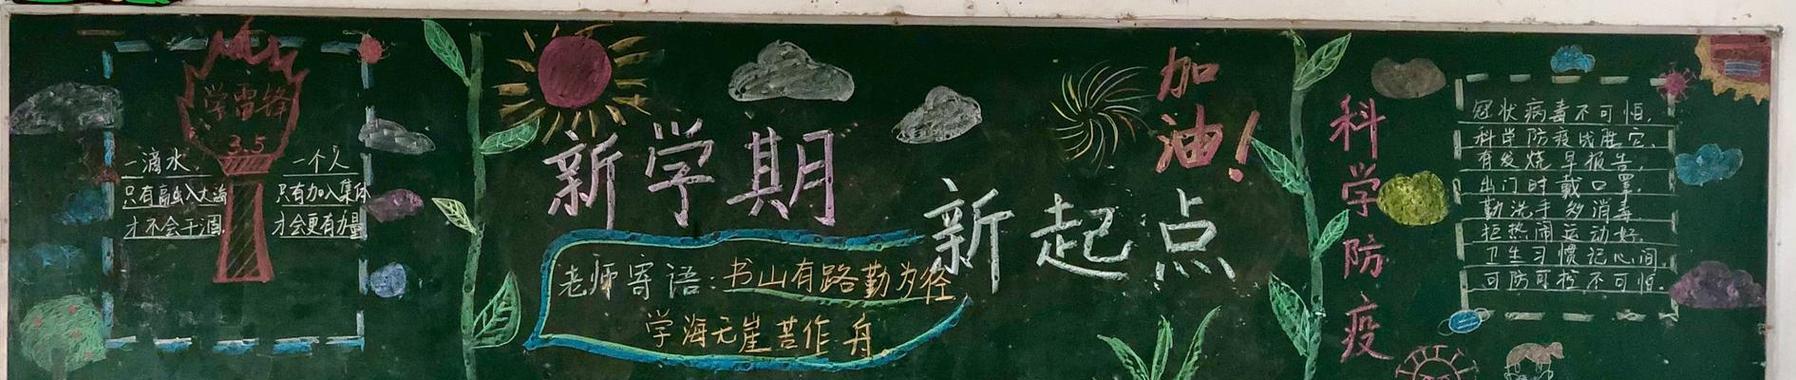 学雷锋
3.5
一滴水，
只有融入大海
才不会干涸
一个人
只有加入集体
才会更有力量
新学期
新起点
加油！
老师寄语：书山有路勤为径，
学海无崖苦作舟。
科学防疫
冠状病毒不可怕，
科学防疫战胜它，
有发烧早报告，
出门时戴口罩，
勤洗手多消毒，
拒热闹运动好，
卫生习惯记心间，
可防可控不可怕。